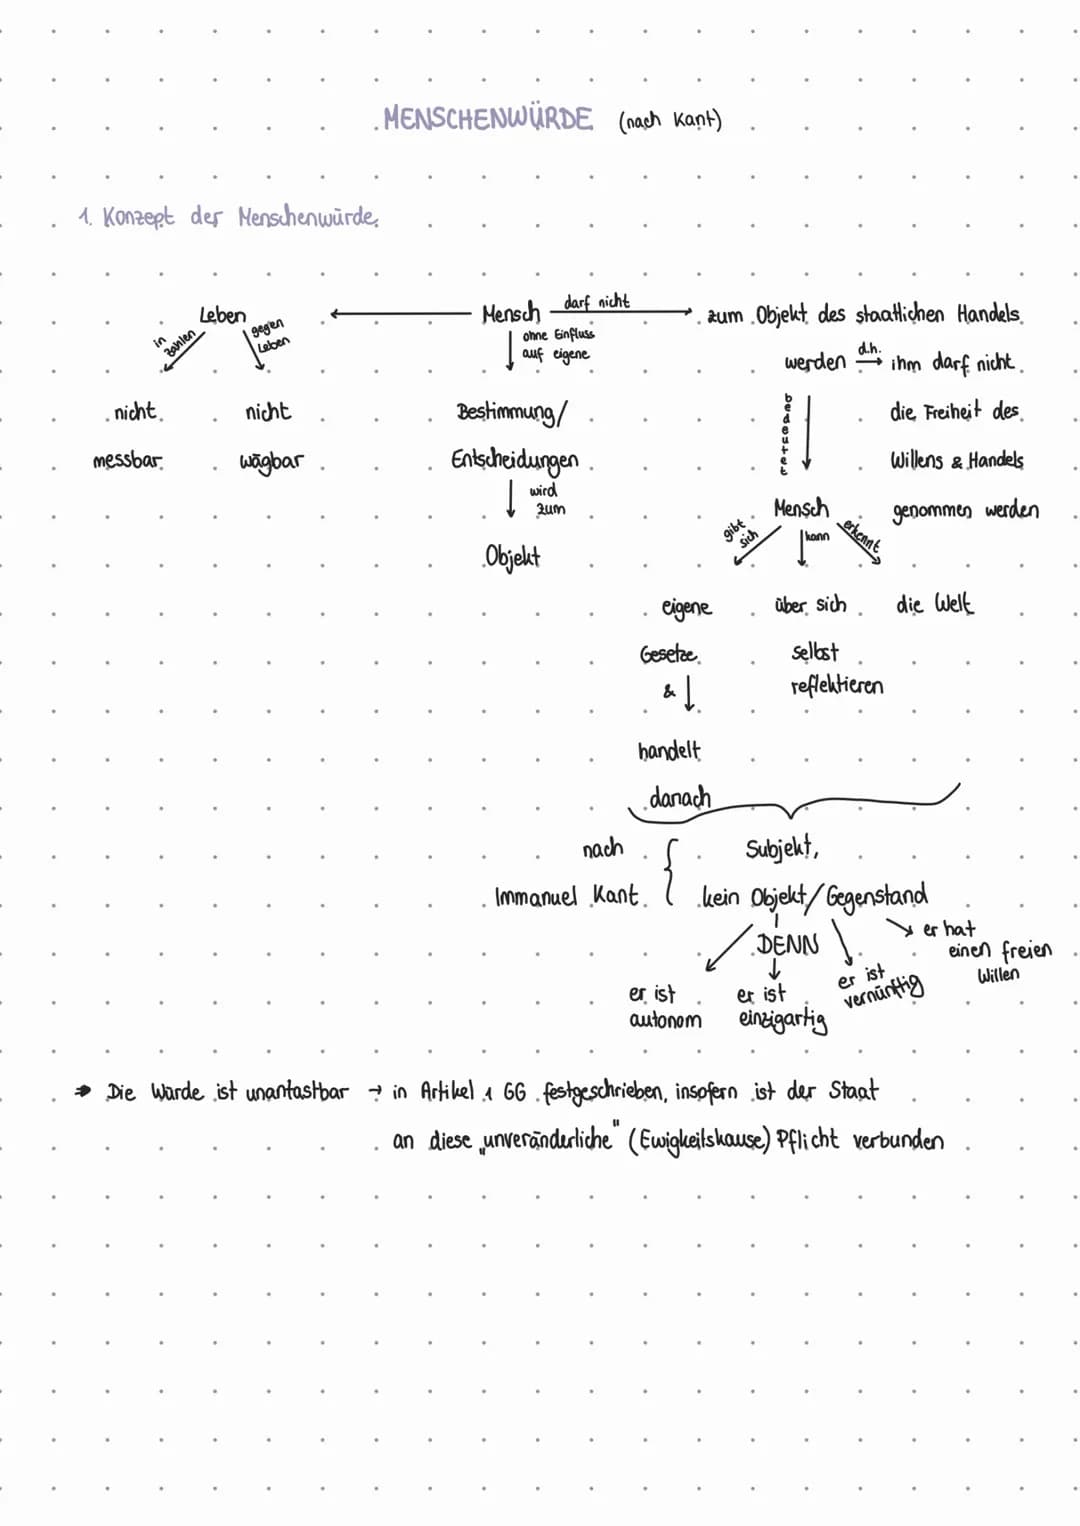 MENSCHENWÜRDE (nach Kant)
1. Konzept der Menschenwürde
Leben
in Zahlen
gegen Leben
nicht messbar
nicht wägbar
Mensch
ohne Einfluss
auf eigene
Bestimmung/
Entscheidungen
wird
zum
Objekt
darf nicht
zum Objekt des staatlichen Handels
werden d.h. ihm darf nicht
die Freiheit des
Willens & Handels
genommen werden
bedeutet
Mensch
gibt sich
eigene
Gesetze
&
handelt
danach
kann
über sich
selbst
reflektieren
erkennt
die Welt
nach
Immanuel Kant
Subjekt,
kein Objekt/Gegenstand
DENN
er ist
autonom
er ist
einzigartig
er ist
vernünftig
er hat
einen freien
Willen
Die Würde ist unantastbar → in Artikel 1 GG festgeschrieben, insofern ist der Staat
an diese „unveränderliche" (Ewigkeitskause) Pflicht verbunden